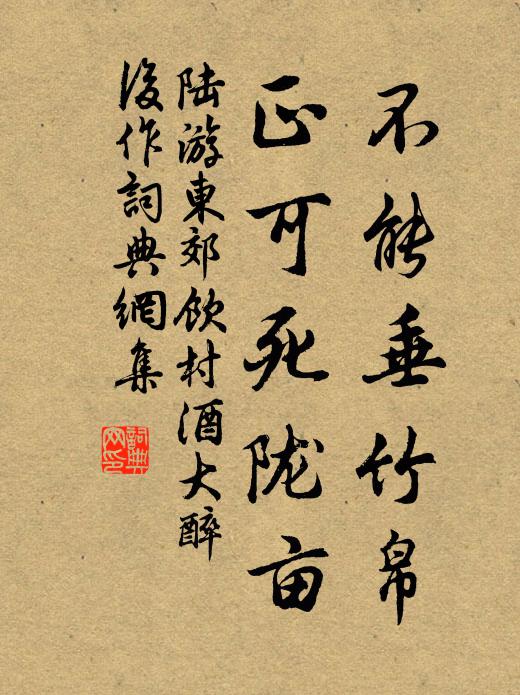 不能垂竹帛
正可死陇亩
陆游東郊飲村酒大醉
後作詞典網集
詞典
网印